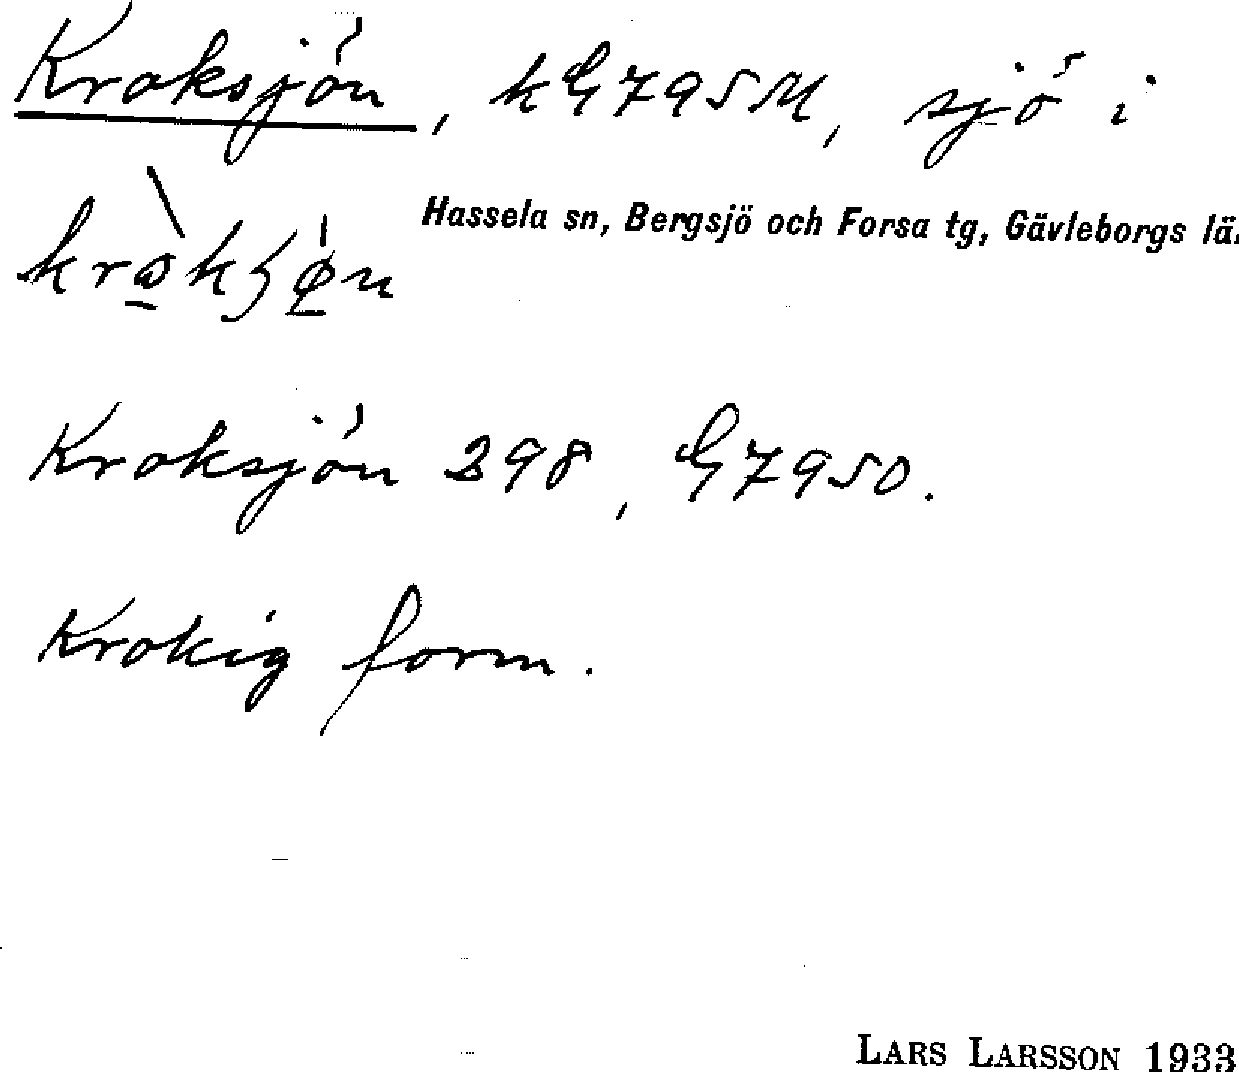 Kroksjön, kG795M, sjö i
Hassela sn, Bergsjö och Forsa tg, Gävleborgs lä
Kroksjön 298, G7950.
Krokig form.
LARS LARSSON 1933